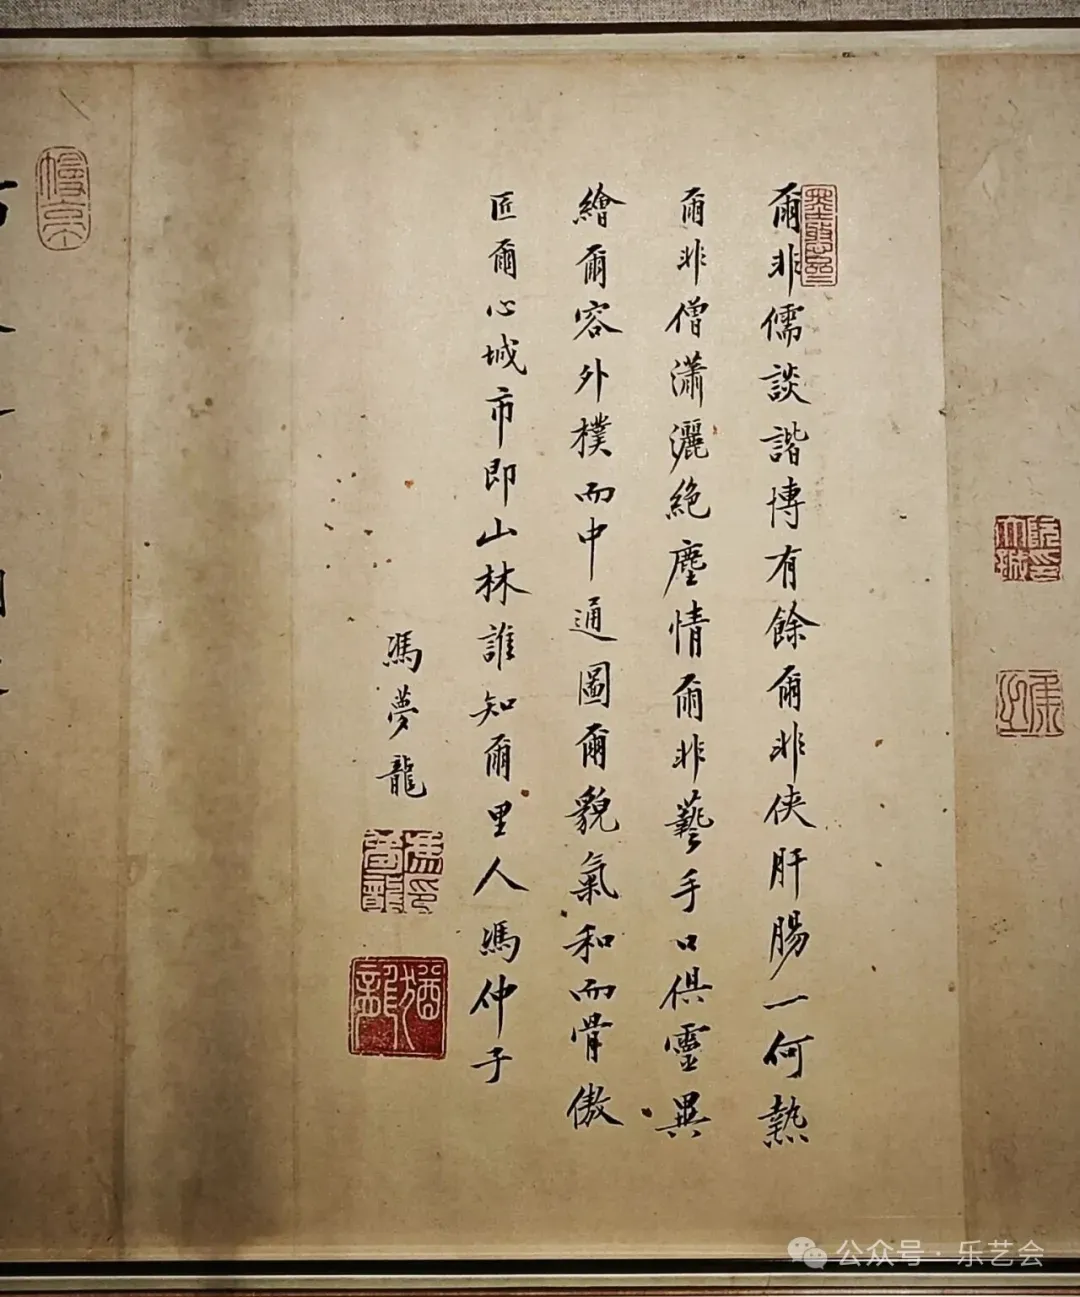 爾非儒談諧博有餘爾非俠肝腸一何熱
爾非僧瀟灑絶塵情爾非藝手口俱靈異
繪爾容外樸而中通圖爾貌氣和而骨傲
匠爾心城市即山林誰知爾里人馮仲子
馮夢龍
馮印夢龍
猶龍
公众号·乐艺会